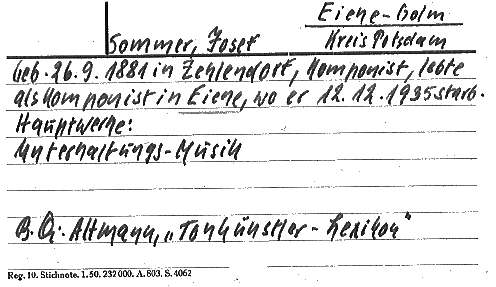 Eiche-Golm
Sommer, Josef Kreis Potsdam
Geb. 26.9.1881 in Zehlendorf, Komponist, lebte
als Komponist in Eiche, wo er 12.12.1935 starb.
Hauptwerke:
Unterhaltungs-Musik
B.Qu.: Altmann, „Tonkünstler-Lexikon"
Reg. 10. Stichnote. 1.50. 232000. A. 803. S. 4062